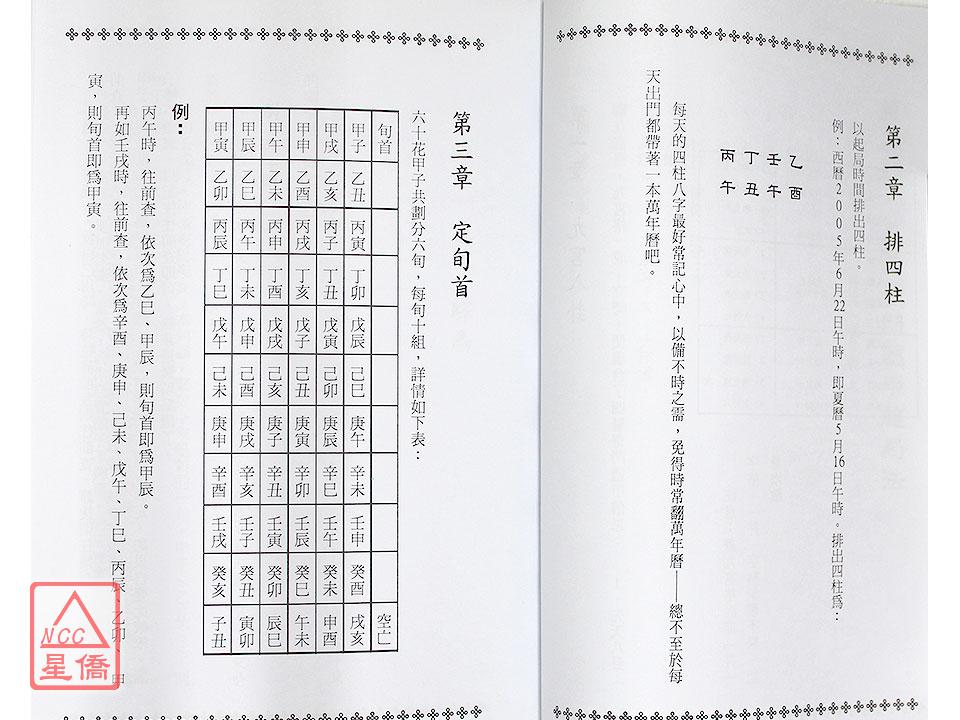 第二章　排四柱
以起局時間排出四柱。
例：西曆2005年6月22日午時，即夏曆5月16日午時。排出四柱為：
乙酉
壬午
丁丑
丙午
每天的四柱八字最好常記心中，以備不時之需，免得時常翻萬年曆——總不至於每
天出門都帶著一本萬年曆吧。
第三章　定旬首
六十花甲子共劃分六旬，每旬十組，詳情如下表：
旬首 空亡
甲子 乙丑 丙寅 丁卯 戊辰 己巳 庚午 辛未 壬申 癸酉 戌亥
甲戌 乙亥 丙子 丁丑 戊寅 己卯 庚辰 辛巳 壬午 癸未 申酉
甲申 乙酉 丙戌 丁亥 戊子 己丑 庚寅 辛卯 壬辰 癸巳 午未
甲午 乙未 丙申 丁酉 戊戌 己亥 庚子 辛丑 壬寅 癸卯 辰巳
甲辰 乙巳 丙午 丁未 戊申 己酉 庚戌 辛亥 壬子 癸丑 寅卯
甲寅 乙卯 丙辰 丁巳 戊午 己未 庚申 辛酉 壬戌 癸亥 子丑
例：
丙午時，往前查，依次為乙巳、甲辰，則旬首即為甲辰。
再如壬戌時，往前查，依次為辛酉、庚申、己未、戊午、丁巳、丙辰、乙卯、甲
寅，則旬首即為甲寅。
NCC
星僑